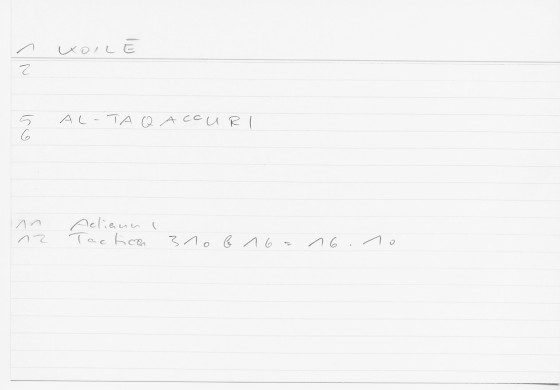 1 KOILĒ
2
5 AL-TAQACCURI
6
11 Aelianus
12 Tactica 310 B 16 = 16.10